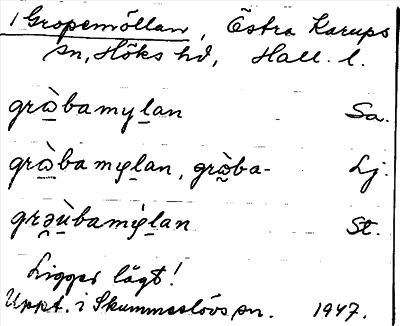 1 Gropemöllan, Östra Karups
sn, Höks hd, Hall. l.
grὼ̱bamyḻan Sa.
grὼ̱bamφḻan, grὼ̱ba- Lj.
grə̯ùbamφ̀ḻan St.
Ligger lågt!
Uppt. i Skummeslövs sn. 1947.